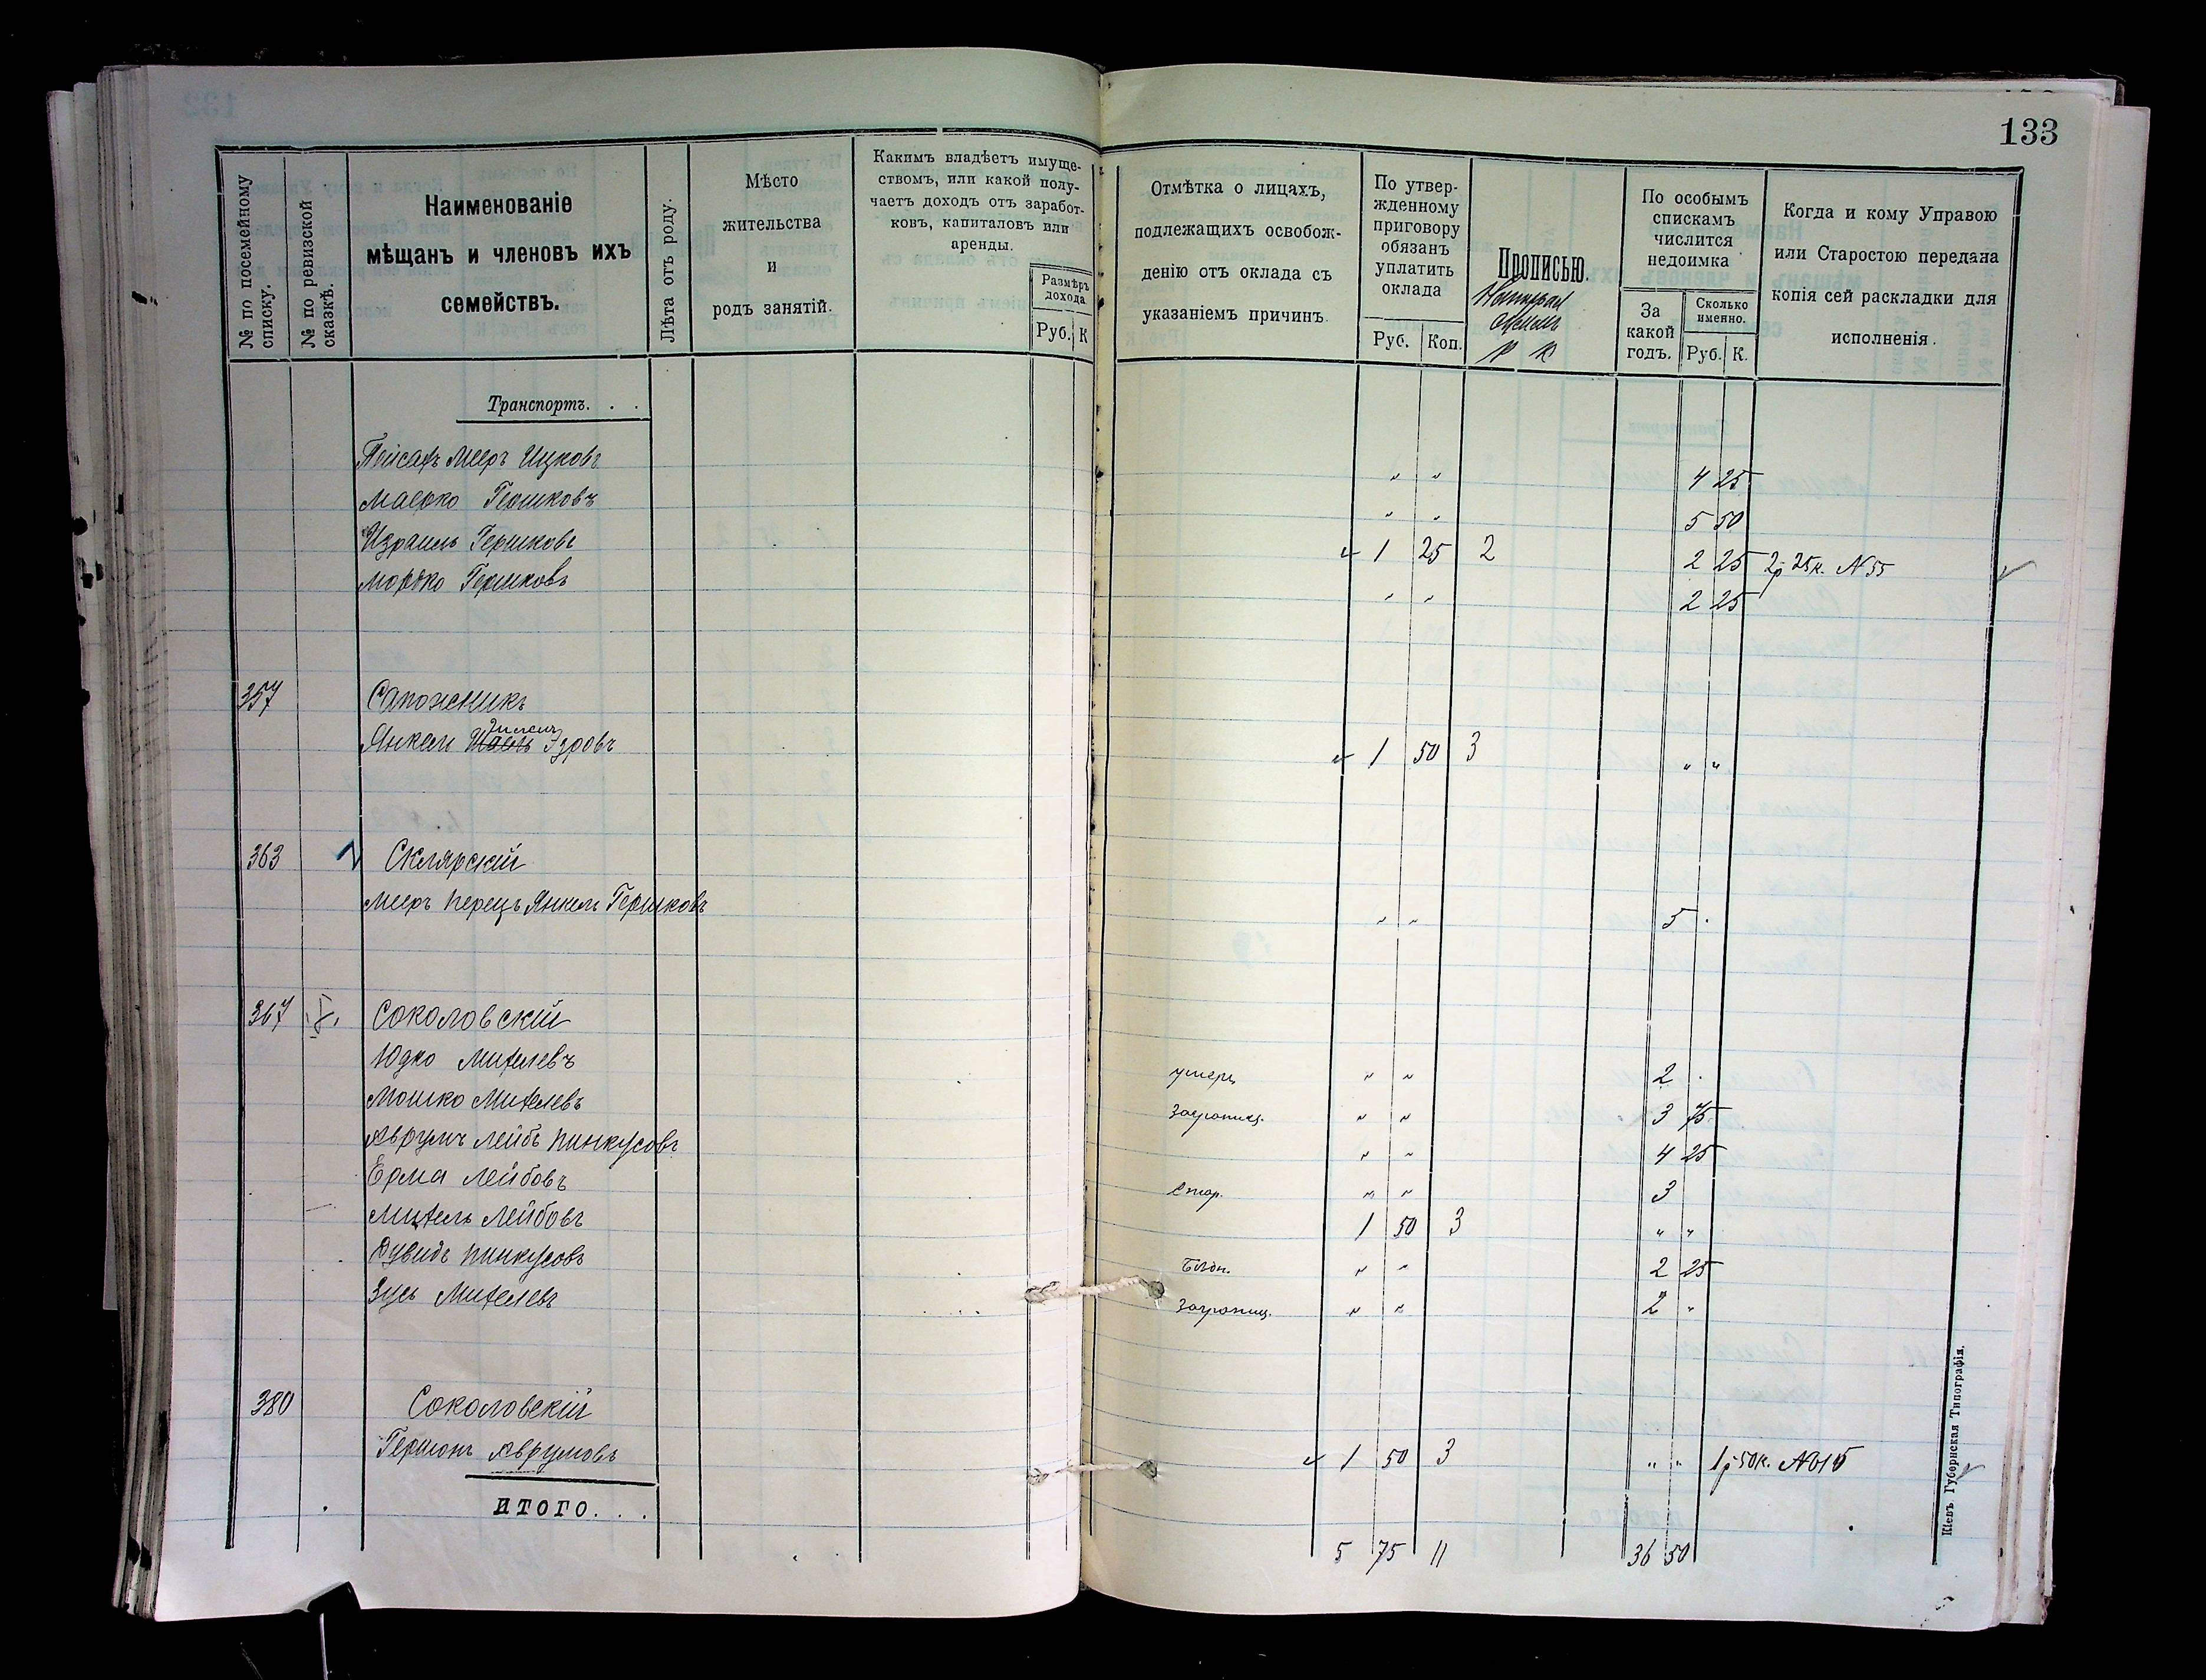 133
№ по посемейному списку.
№ по ревизской сказкѣ.
Наименованіе
мѣщанъ и членовъ ихъ
семействъ.
Лѣта отъ роду.
Мѣсто
жительства
и
родъ занятій.
Какимъ владѣетъ имуще-
ствомъ, или какой полу-
чаетъ доходъ отъ заработ-
ковъ, капиталовъ или
аренды.
Размѣръ
дохода.
Руб. К
Отмѣтка о лицахъ,
подлежащихъ освобож-
денію отъ оклада съ
указаніемъ причинъ.
По утвер-
жденному
приговору
обязанъ
уплатить
оклада
Руб. Коп.
Прописью.
Р К
По особымъ
спискамъ
числится
недоимка
За
какой
годъ.
Сколько
именно.
Руб. К.
Когда и кому Управою
или Старостою передана
копія сей раскладки для
исполненія.
Транспортъ. . .
Пейсахъ Меер Ицковъ " " 4 25
Маерко Гершковъ " " 5 50
Израиль Гершковъ 1 25 2 2 25 2р 25к. N 55
Мордко Гершковъ " " 2 25
357 Сапожникъ
Янкель Эздровъ 1 50 3 " "
363 Склярскій
Меер Перецъ Янкель Гершковъ " " 5
367 Соколовскій
Юдко Михелевъ умеръ " " 2
Мошко Михелевъ Заграниц. " " 3 75
Аврумъ Лейбъ Пинкусовъ " " 4 25
Ерма Лейбовъ Стар. " " 3
Михель Лейбовъ 1 50 3 " "
Дувидъ Пинкусовъ Бѣдн. " " 2 25
Зусь Михелевъ Заграниц. " " 2 "
380 Соколовскій
Гершонъ Аврумовъ 1 50 3 " " 1р 50к.
ИТОГО. . .
5 75 11 36 50
Кіевъ Губернская Типографія.